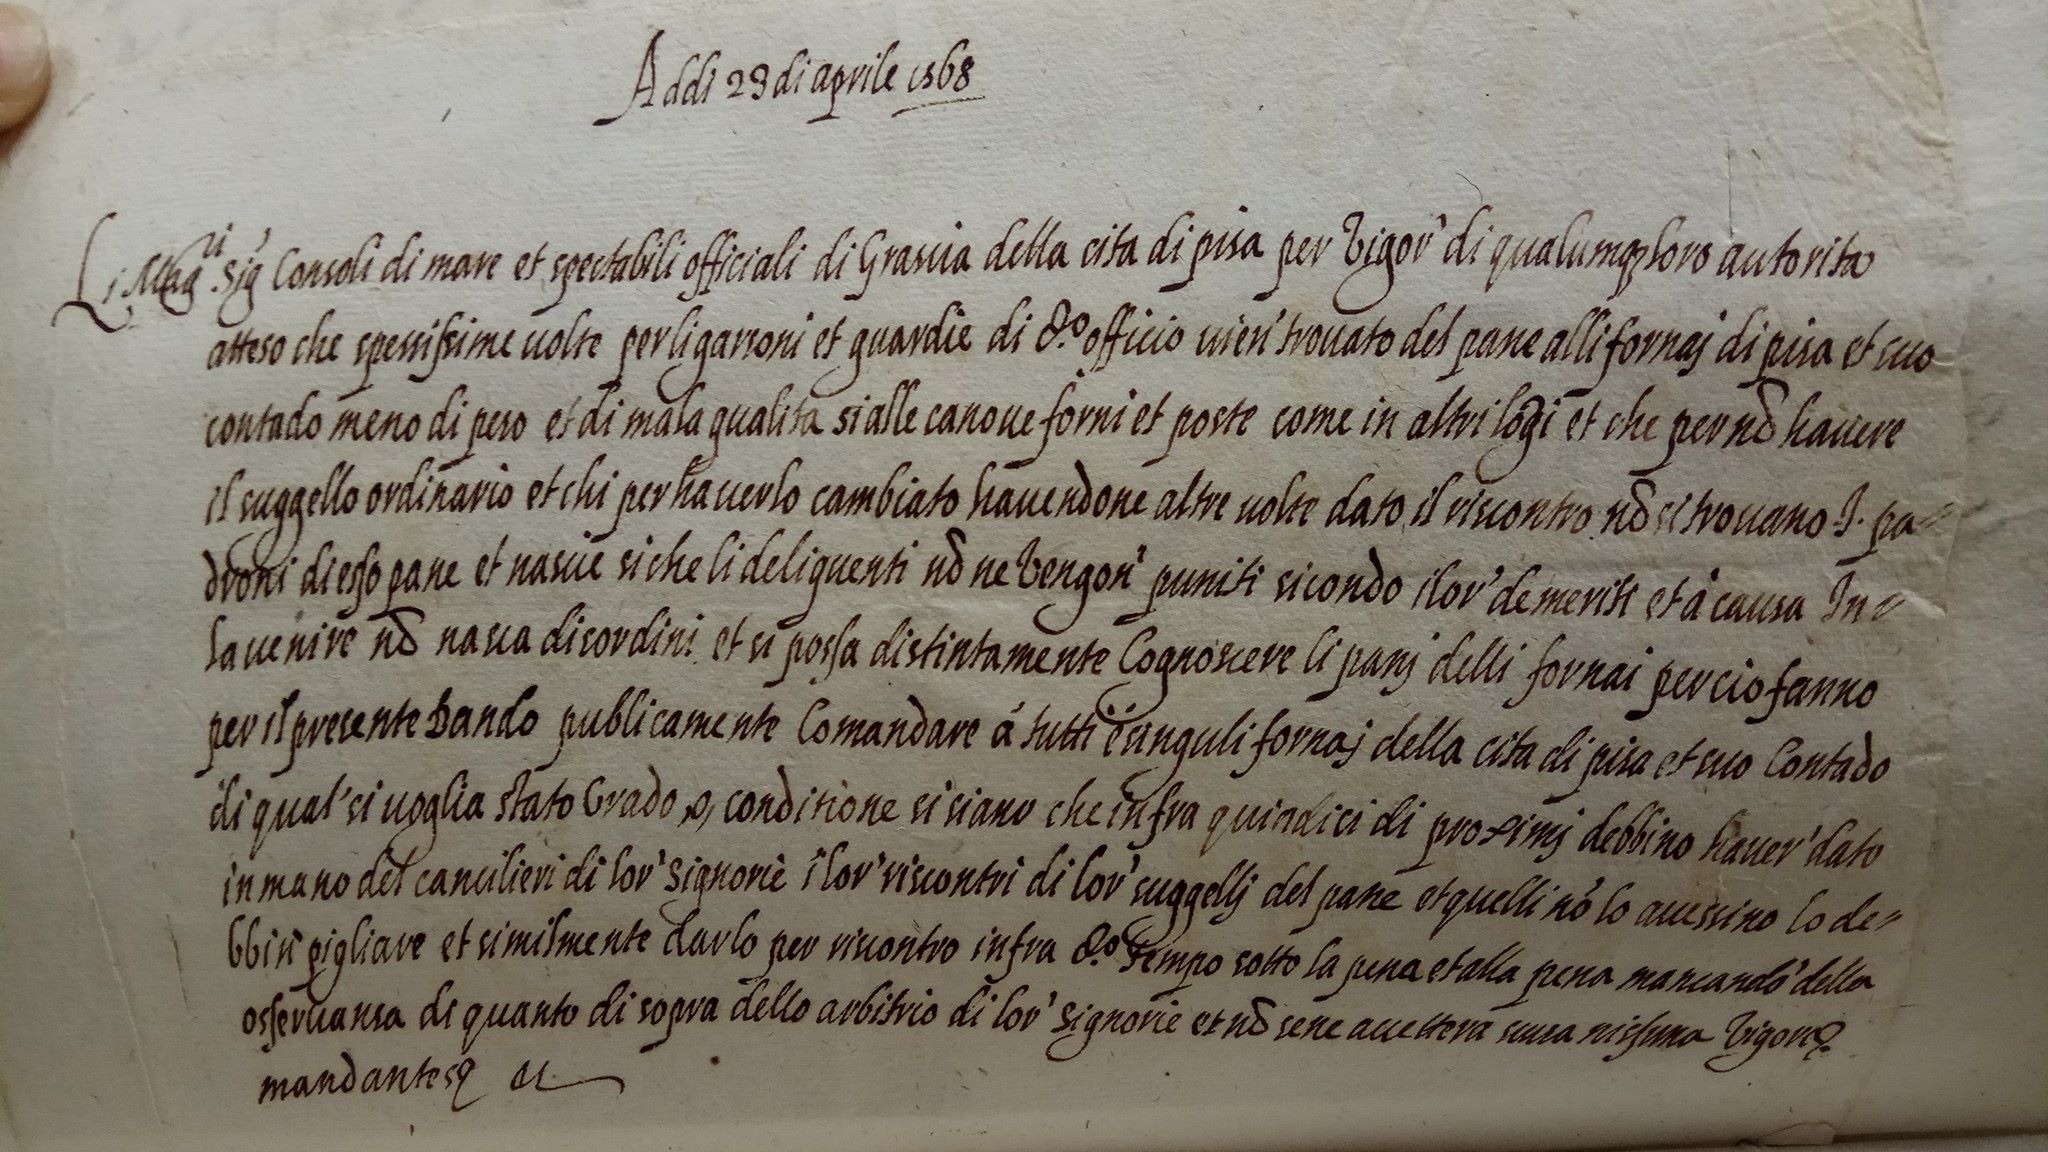 Addi 23 di aprile 1568
Li Mag.ci Sig.ri Consoli di mare et spectabili officiali di Grascia della cita di pisa per vigor' di qualumq3 loro autorita
atteso che spessissime volte per li garzoni et guardie di d.o officio vien' trovato del pane alli fornaj di pisa et suo
contado meno di peso et di mala qualita si alle canove forni et poste come in altri lōgi et che per nō havere
il suggello ordinario et chi per haverlo cambiato havendone altre volte dato il riscontro nō si trovano I. pa=
droni di esso pane et nascie si che li deliquenti nō ne vengon' puniti sicondo i lor' demeriti et à causa In=
lavenire nō nasca disordini et si possa distintamente Cognoscere li panj delli fornai per cio fanno
per il presente bando publicamente Comandare á tutti è singuli fornaj della cita di pisa et suo Contado
di qual' si voglia stato Grado o, conditione si siano che infra quindici di proximj debbino haver' dato
in mano del cancilieri di lor' Signorie i lor' riscontri di lor' suggellj del pane et quelli nō lo avessino lo de=
bbin' pigliare et similmente darlo per riscontro infra d.o tempo sotto la pena et alla pena mancando' della
osservansa di quanto di sopra dello arbitrio di lor' Signorie et nō se ne accettera scusa nissuna vigore
mandantesq3 etc